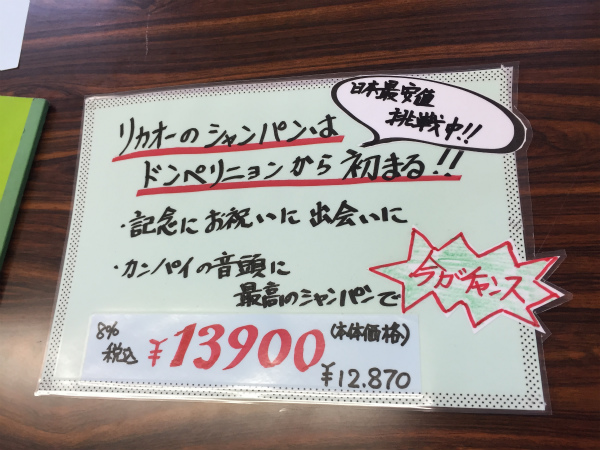 日本最安値
挑戦中!!
リカオーのシャンパンは
ドンペリニョンから初まる!!
・記念にお祝いに出会いに
・カンパイの音頭に
最高のシャンパンで
今がチャンス
8%
税込
¥13900
(本体価格)
¥12.870